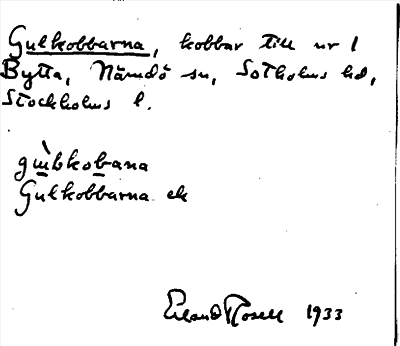 Gulkobbarna, kobbar till nr 1
Bytta, Nämdö sn, Sotholms hd,
Stockholms l.
gùlbkobana
Gulkobbarna ek
Erland Rosell 1933